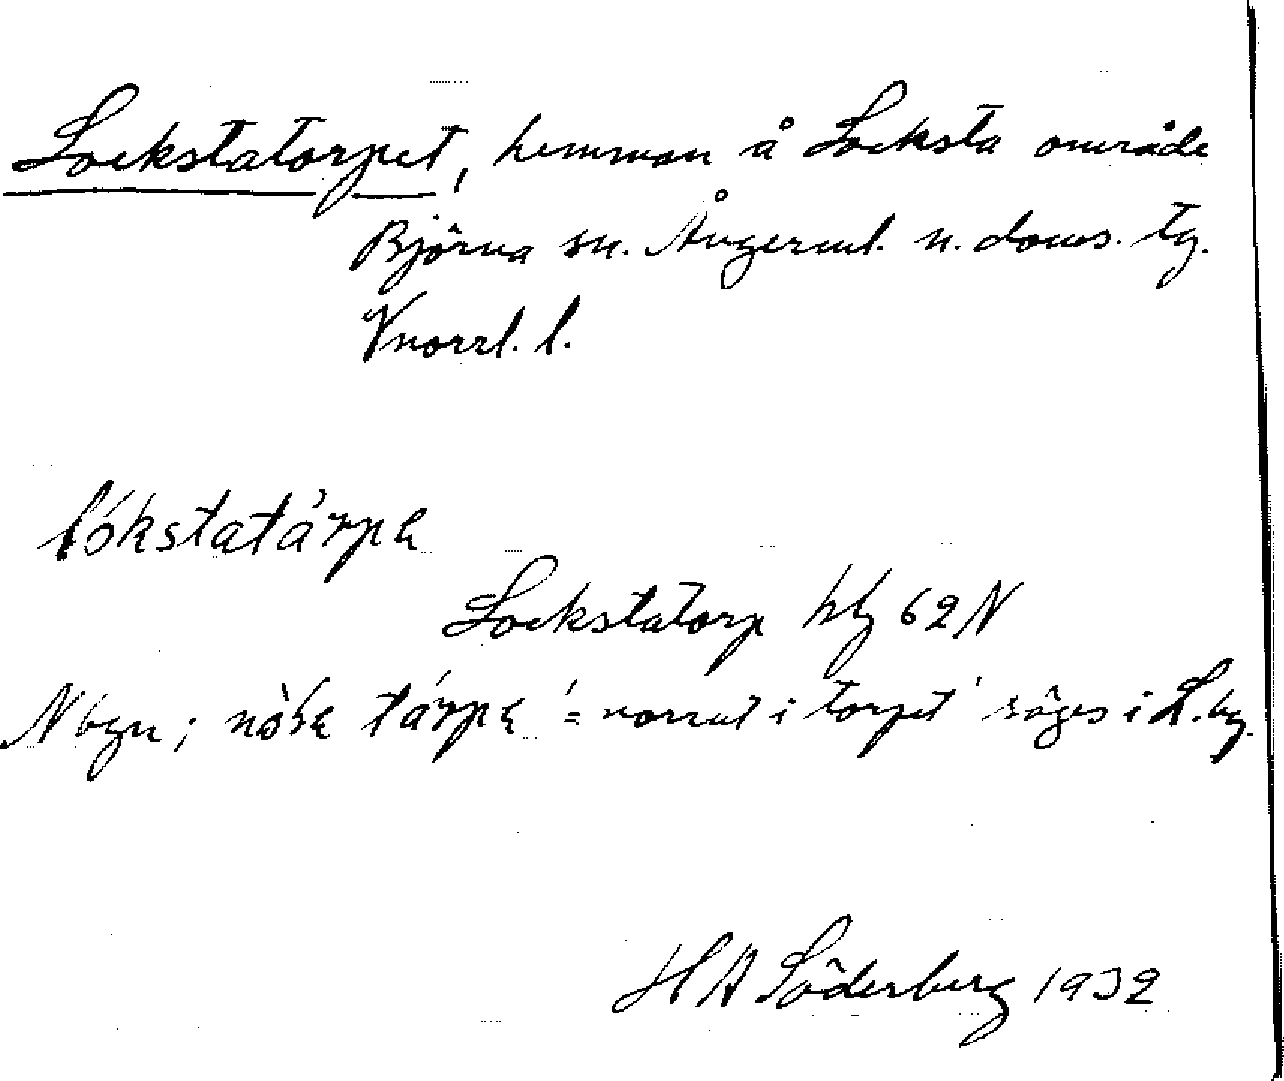 Lockstatorpet, hemman å Locksta område
Björna sn. Ångerml. n. doms. tg.
Vnorrl. l.
lókstatárpe
Lockstatorp hbl 62 N
N byn; tárpe = norrut i torpet' säges i L. by.
H A Söderberg 1932